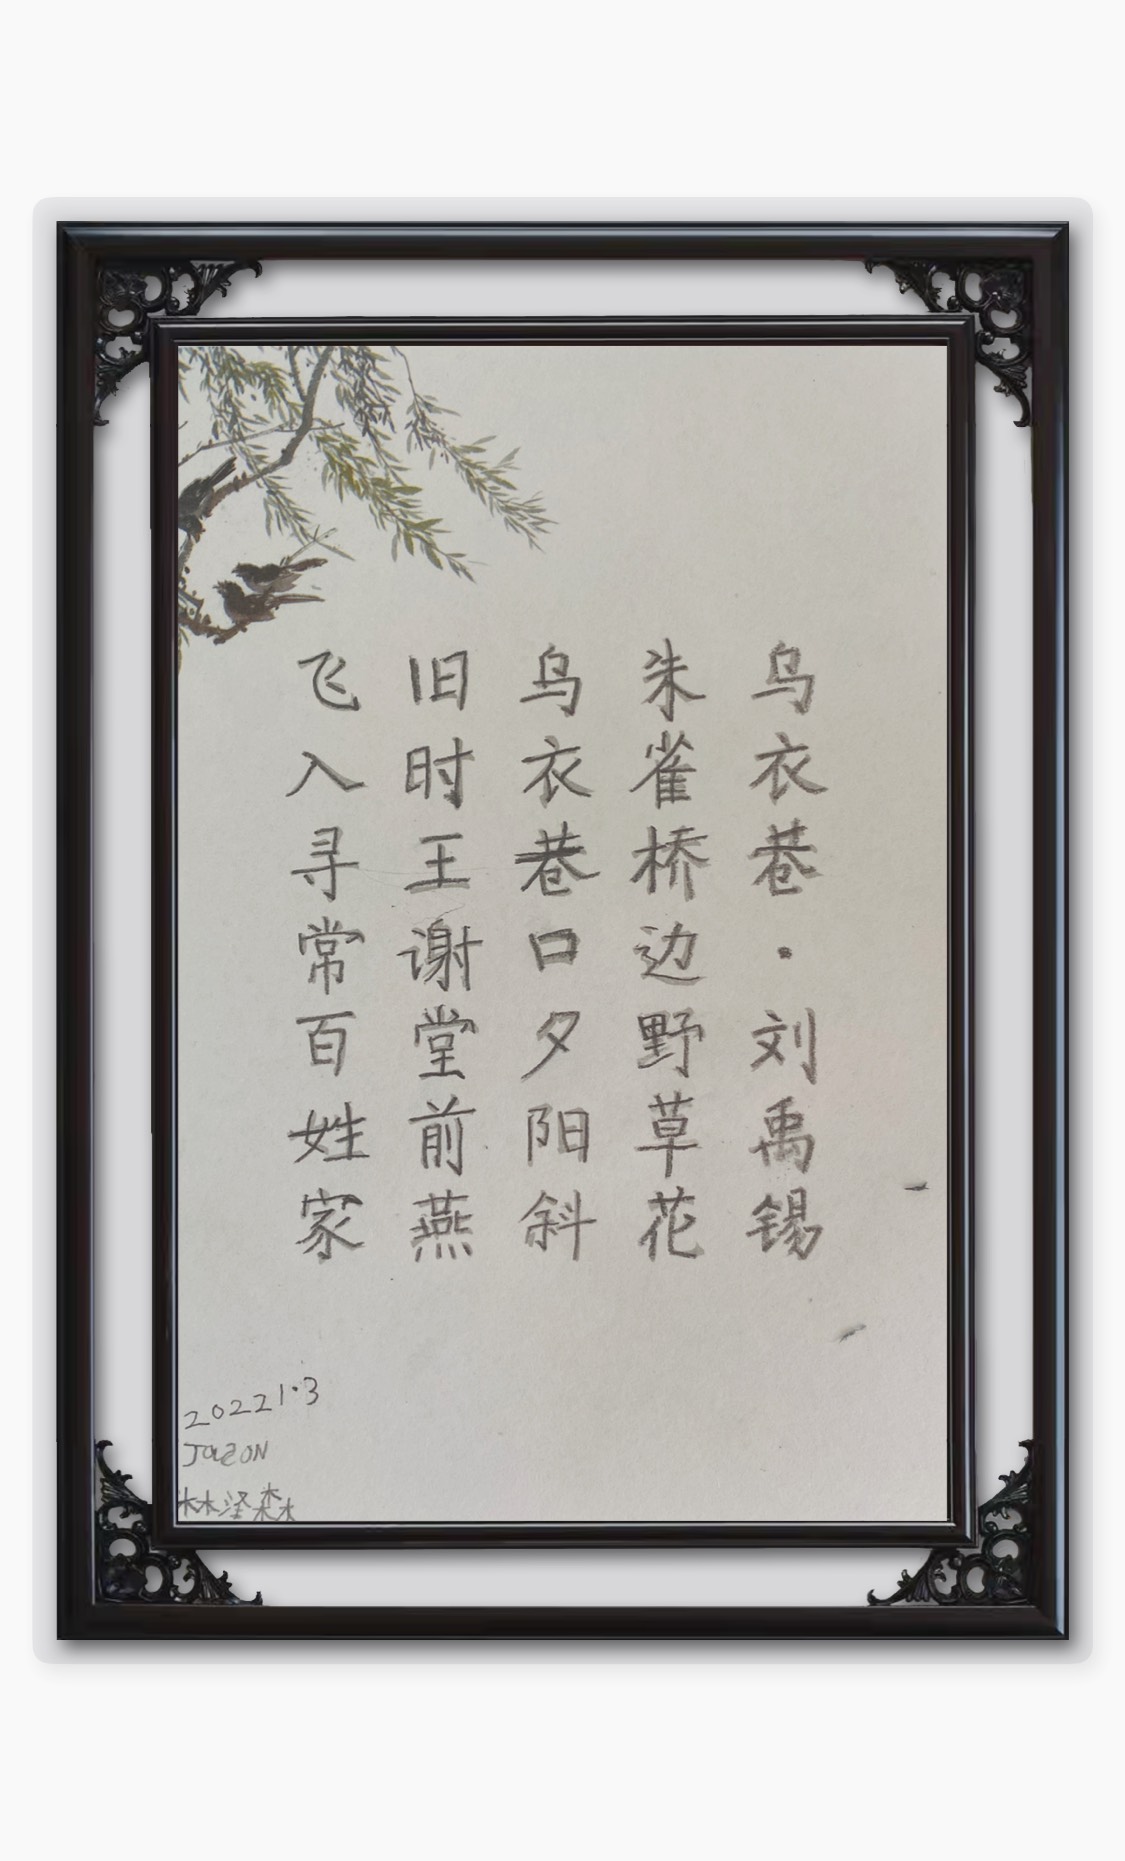 乌衣巷·刘禹锡
朱雀桥边野草花
乌衣巷口夕阳斜
旧时王谢堂前燕
飞入寻常百姓家
20221·3
JaZON
林泽森